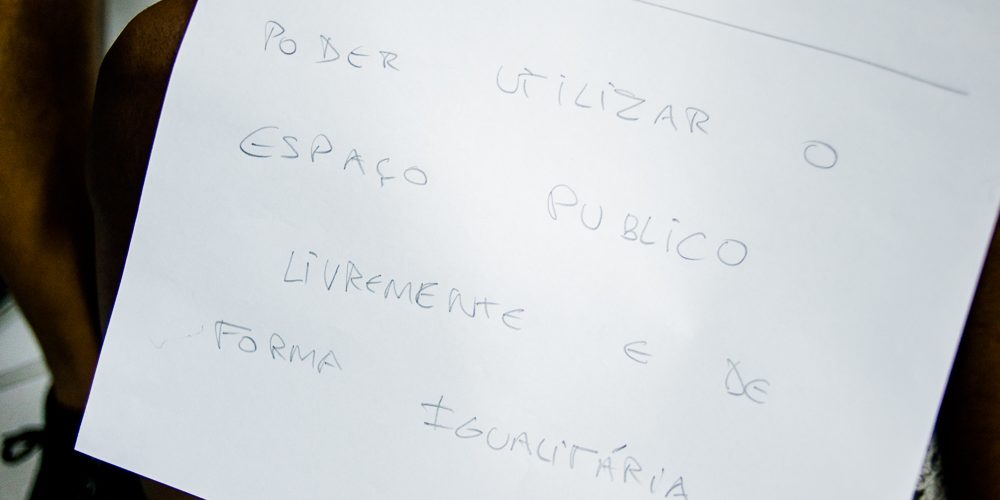 PODER UTILIZAR O
ESPAÇO PUBLICO
LIVREMENTE E DE
FORMA IGUALITÁRIA